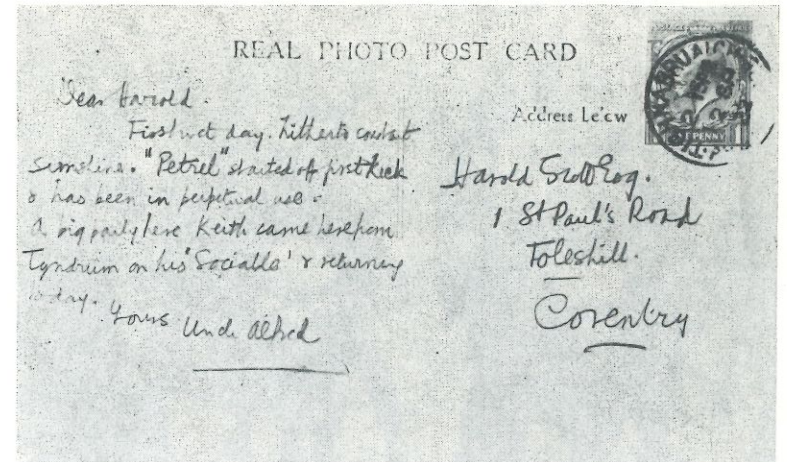 REAL PHOTO POST CARD
Dear Harold.
First wet day. Hitherto constant
sunshine. "Petrel" started off first kick
& has been in perpetual use.
A big party here Keith came here from
Tyndrum on his 'Sociable' & returning
to day.
Yours Uncle Alfred
Address
Harold Scott Esq.
1 St Paul's Road
Foleshill.
Coventry
PENNY